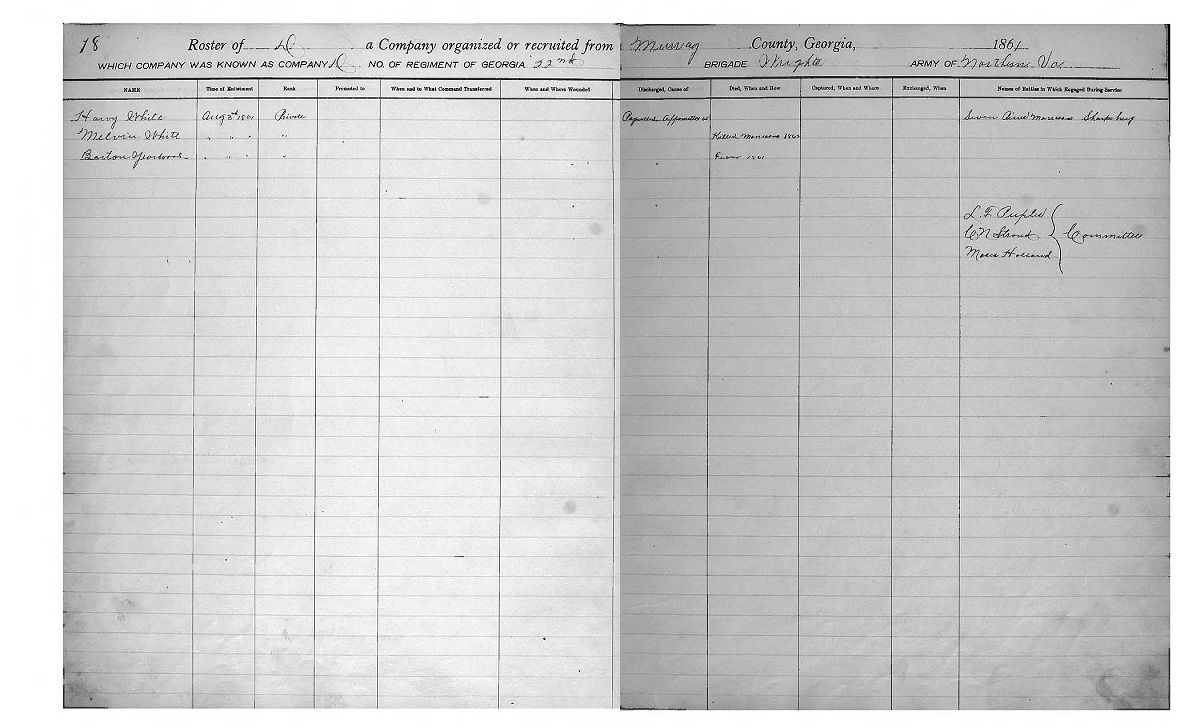 18 Roster of D a Company organized or recruited from Murray County, Georgia, 1861
WHICH COMPANY WAS KNOWN AS COMPANY D NO. OF REGIMENT OF GEORGIA 22nd BRIGADE Wrights ARMY OF Northern Va
NAME Time of Enlistment Rank Promoted to When and to What Command Transferred When and Where Wounded Discharged, Cause of Died, When and How Captured, When and Where Exchanged, When Names of Battles in Which Engaged During Service
Harvy White Aug 1861 Private Appomattox Seven Pines Manassas Sharpsburg
Melvin White " " " " Killed Manassas 1862
Barton " " " " Fever 1861
L. F. Peeples
C N Stroud Committee
Moses Holland